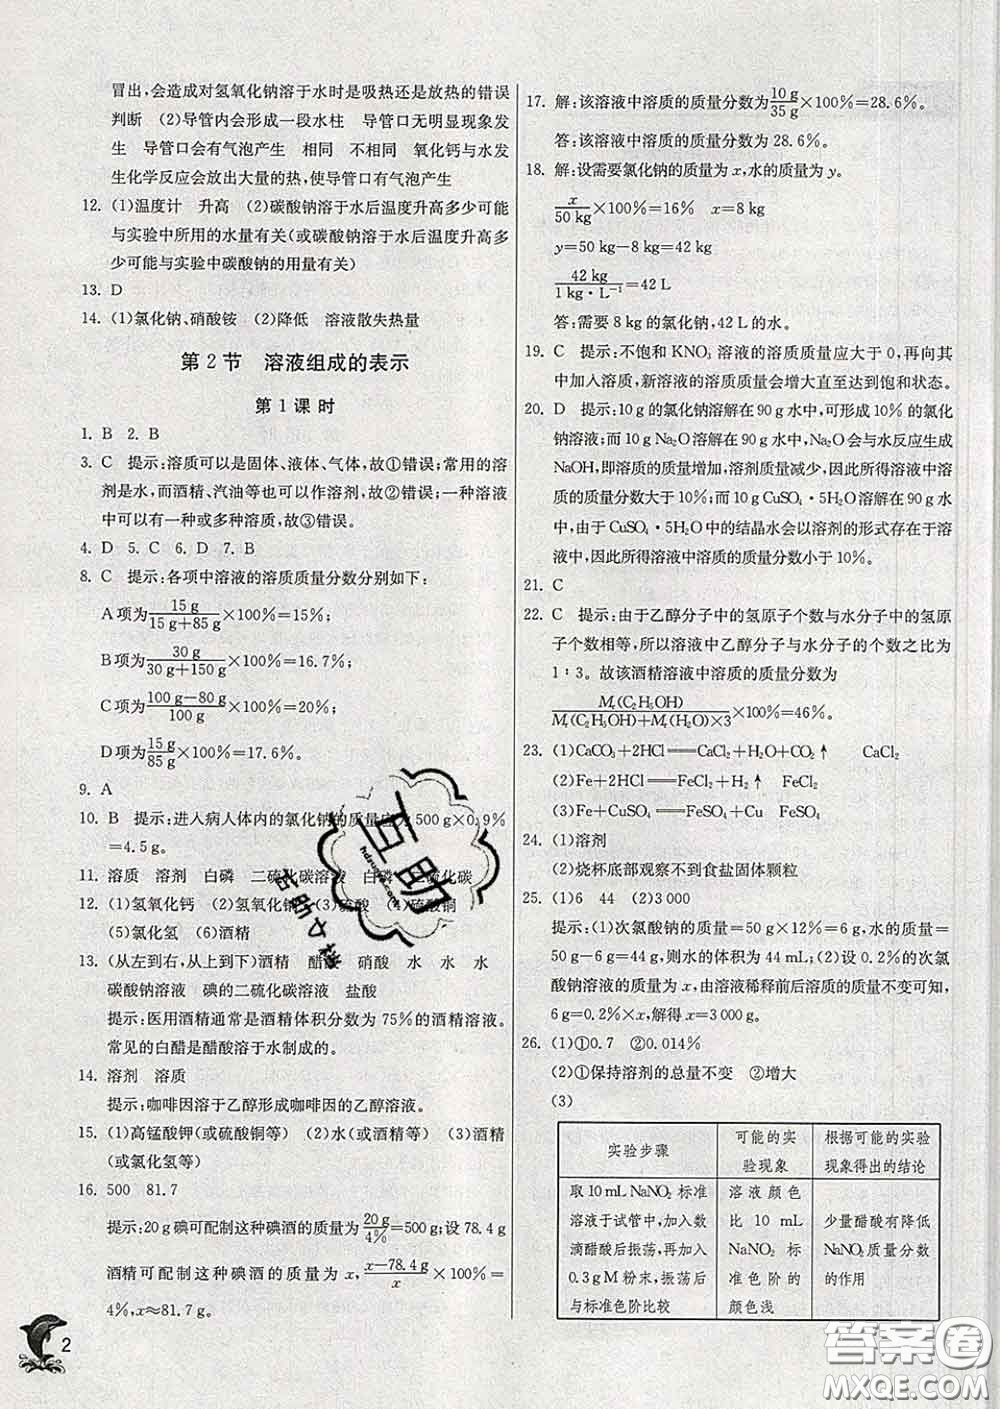 冒出,会造成对氢氧化钠溶于水时是吸热还是放热的错误
判断　(2)导管内会形成一段水柱　导管口无明显现象发
生　导管口会有气泡产生　相同　不相同　氧化钙与水发
生化学反应会放出大量的热,使导管口有气泡产生
12. (1)温度计　升高　(2)碳酸钠溶于水后温度升高多少可能
与实验中所用的水量有关(或碳酸钠溶于水后温度升高多
少可能与实验中碳酸钠的用量有关)
13. D
14. (1)氯化钠、硝酸铵　(2)降低　溶液散失热量
第 2 节　溶液组成的表示
第 1 课 时
1. B　2. B
3. C　提示:溶质可以是固体、液体、气体,故①错误;常用的溶
剂是水,而酒精、汽油等也可以作溶剂,故②错误;一种溶液
中可以有一种或多种溶质,故③错误。
4. D　5. C　6. D　7. B
8. C　提示:各项中溶液的溶质质量分数分别如下:
A项为15 g/(15 g+85 g)×100%=15%;
B项为30 g/(30 g+150 g)×100%=16.7%;
C项为(100 g-80 g)/100 g×100%=20%;
D项为15 g/85 g×100%=17.6%。
9. A
10. B　提示:进入病人体内的氯化钠的质量应为500 g×0.9%
=4.5 g。
11. 溶质　溶剂　白磷　二硫化碳溶液　白磷　二硫化碳
12. (1)氢氧化钙　(2)氢氧化钠　(3)硫酸　(4)硫酸铜
(5)氯化氢　(6)酒精
13. (从左到右,从上到下)酒精　醋酸　硝酸　水　水　水
碳酸钠溶液　碘的二硫化碳溶液　盐酸
提示:医用酒精通常是酒精体积分数为75%的酒精溶液。
常见的白醋是醋酸溶于水制成的。
14. 溶剂　溶质
提示:咖啡因溶于乙醇形成咖啡因的乙醇溶液。
15. (1)高锰酸钾(或硫酸铜等)　(2)水(或酒精等)　(3)酒精
(或氯化氢等)
16. 500　81.7
提示:20 g碘可配制这种碘酒的质量为20 g/4%=500 g;设78.4 g
酒精可配制这种碘酒的质量为x,(x-78.4 g)/x×100%=
4%,x≈81.7 g。
2
17. 解:该溶液中溶质的质量分数为10 g/35 g×100%=28.6%。
答:该溶液中溶质的质量分数为28.6%。
18. 解:设需要氯化钠的质量为x,水的质量为y。
x/50 kg×100%=16%　x=8 kg
y=50 kg-8 kg=42 kg
42 kg/(1 kg·L⁻¹)=42 L
答:需要8 kg的氯化钠,42 L的水。
19. C　提示:不饱和KNO₃溶液的溶质质量应大于0,再向其
中加入溶质,新溶液的溶质质量会增大直至达到饱和状态。
20. D　提示:10 g的氯化钠溶解在90 g水中,可形成10%的氯化
钠溶液;而10 g Na₂O溶解在90 g水中,Na₂O会与水反应生成
NaOH,即溶质的质量增加,溶剂质量减少,因此所得溶液中溶
质的质量分数大于10%;而10 g CuSO₄·5H₂O溶解在90 g水
中,由于CuSO₄·5H₂O中的结晶水会以溶剂的形式存在于溶
液中,因此所得溶液中溶质的质量分数小于10%。
21. C
22. C　提示:由于乙醇分子中的氢原子个数与水分子中的氢原
子个数相等,所以溶液中乙醇分子与水分子的个数之比为
1∶3。故该酒精溶液中溶质的质量分数为
Mr(C₂H₅OH)/(Mr(C₂H₅OH)+Mr(H₂O)×3)×100%=46%。
23. (1)CaCO₃+2HCl══CaCl₂+H₂O+CO₂↑　CaCl₂
(2)Fe+2HCl══FeCl₂+H₂↑　FeCl₂
(3)Fe+CuSO₄══FeSO₄+Cu　FeSO₄
24. (1)溶剂
(2)烧杯底部观察不到食盐固体颗粒
25. (1)6　44　(2)3 000
提示:(1)次氯酸钠的质量=50 g×12%=6 g,水的质量=
50 g-6 g=44 g,则水的体积为44 mL;(2)设0.2%的次氯
酸钠溶液的质量为x,由溶液稀释前后溶质的质量不变可知,
6 g=0.2%×x,解得x=3 000 g。
26. (1)①0.7　②0.014%
(2)①保持溶剂的总量不变　②增大
(3)
实验步骤　可能的实验现象　根据可能的实验现象得出的结论
取10 mL NaNO₂标准　溶液颜色
溶液于试管中,加入数　比10 mL　少量醋酸有降低
滴醋酸后振荡,再加入　NaNO₂标　NaNO₂质量分数
0.3 g M粉末,振荡后　准色阶的　的作用
与标准色阶比较　颜色浅
互助
答案圈
MXQE.COM